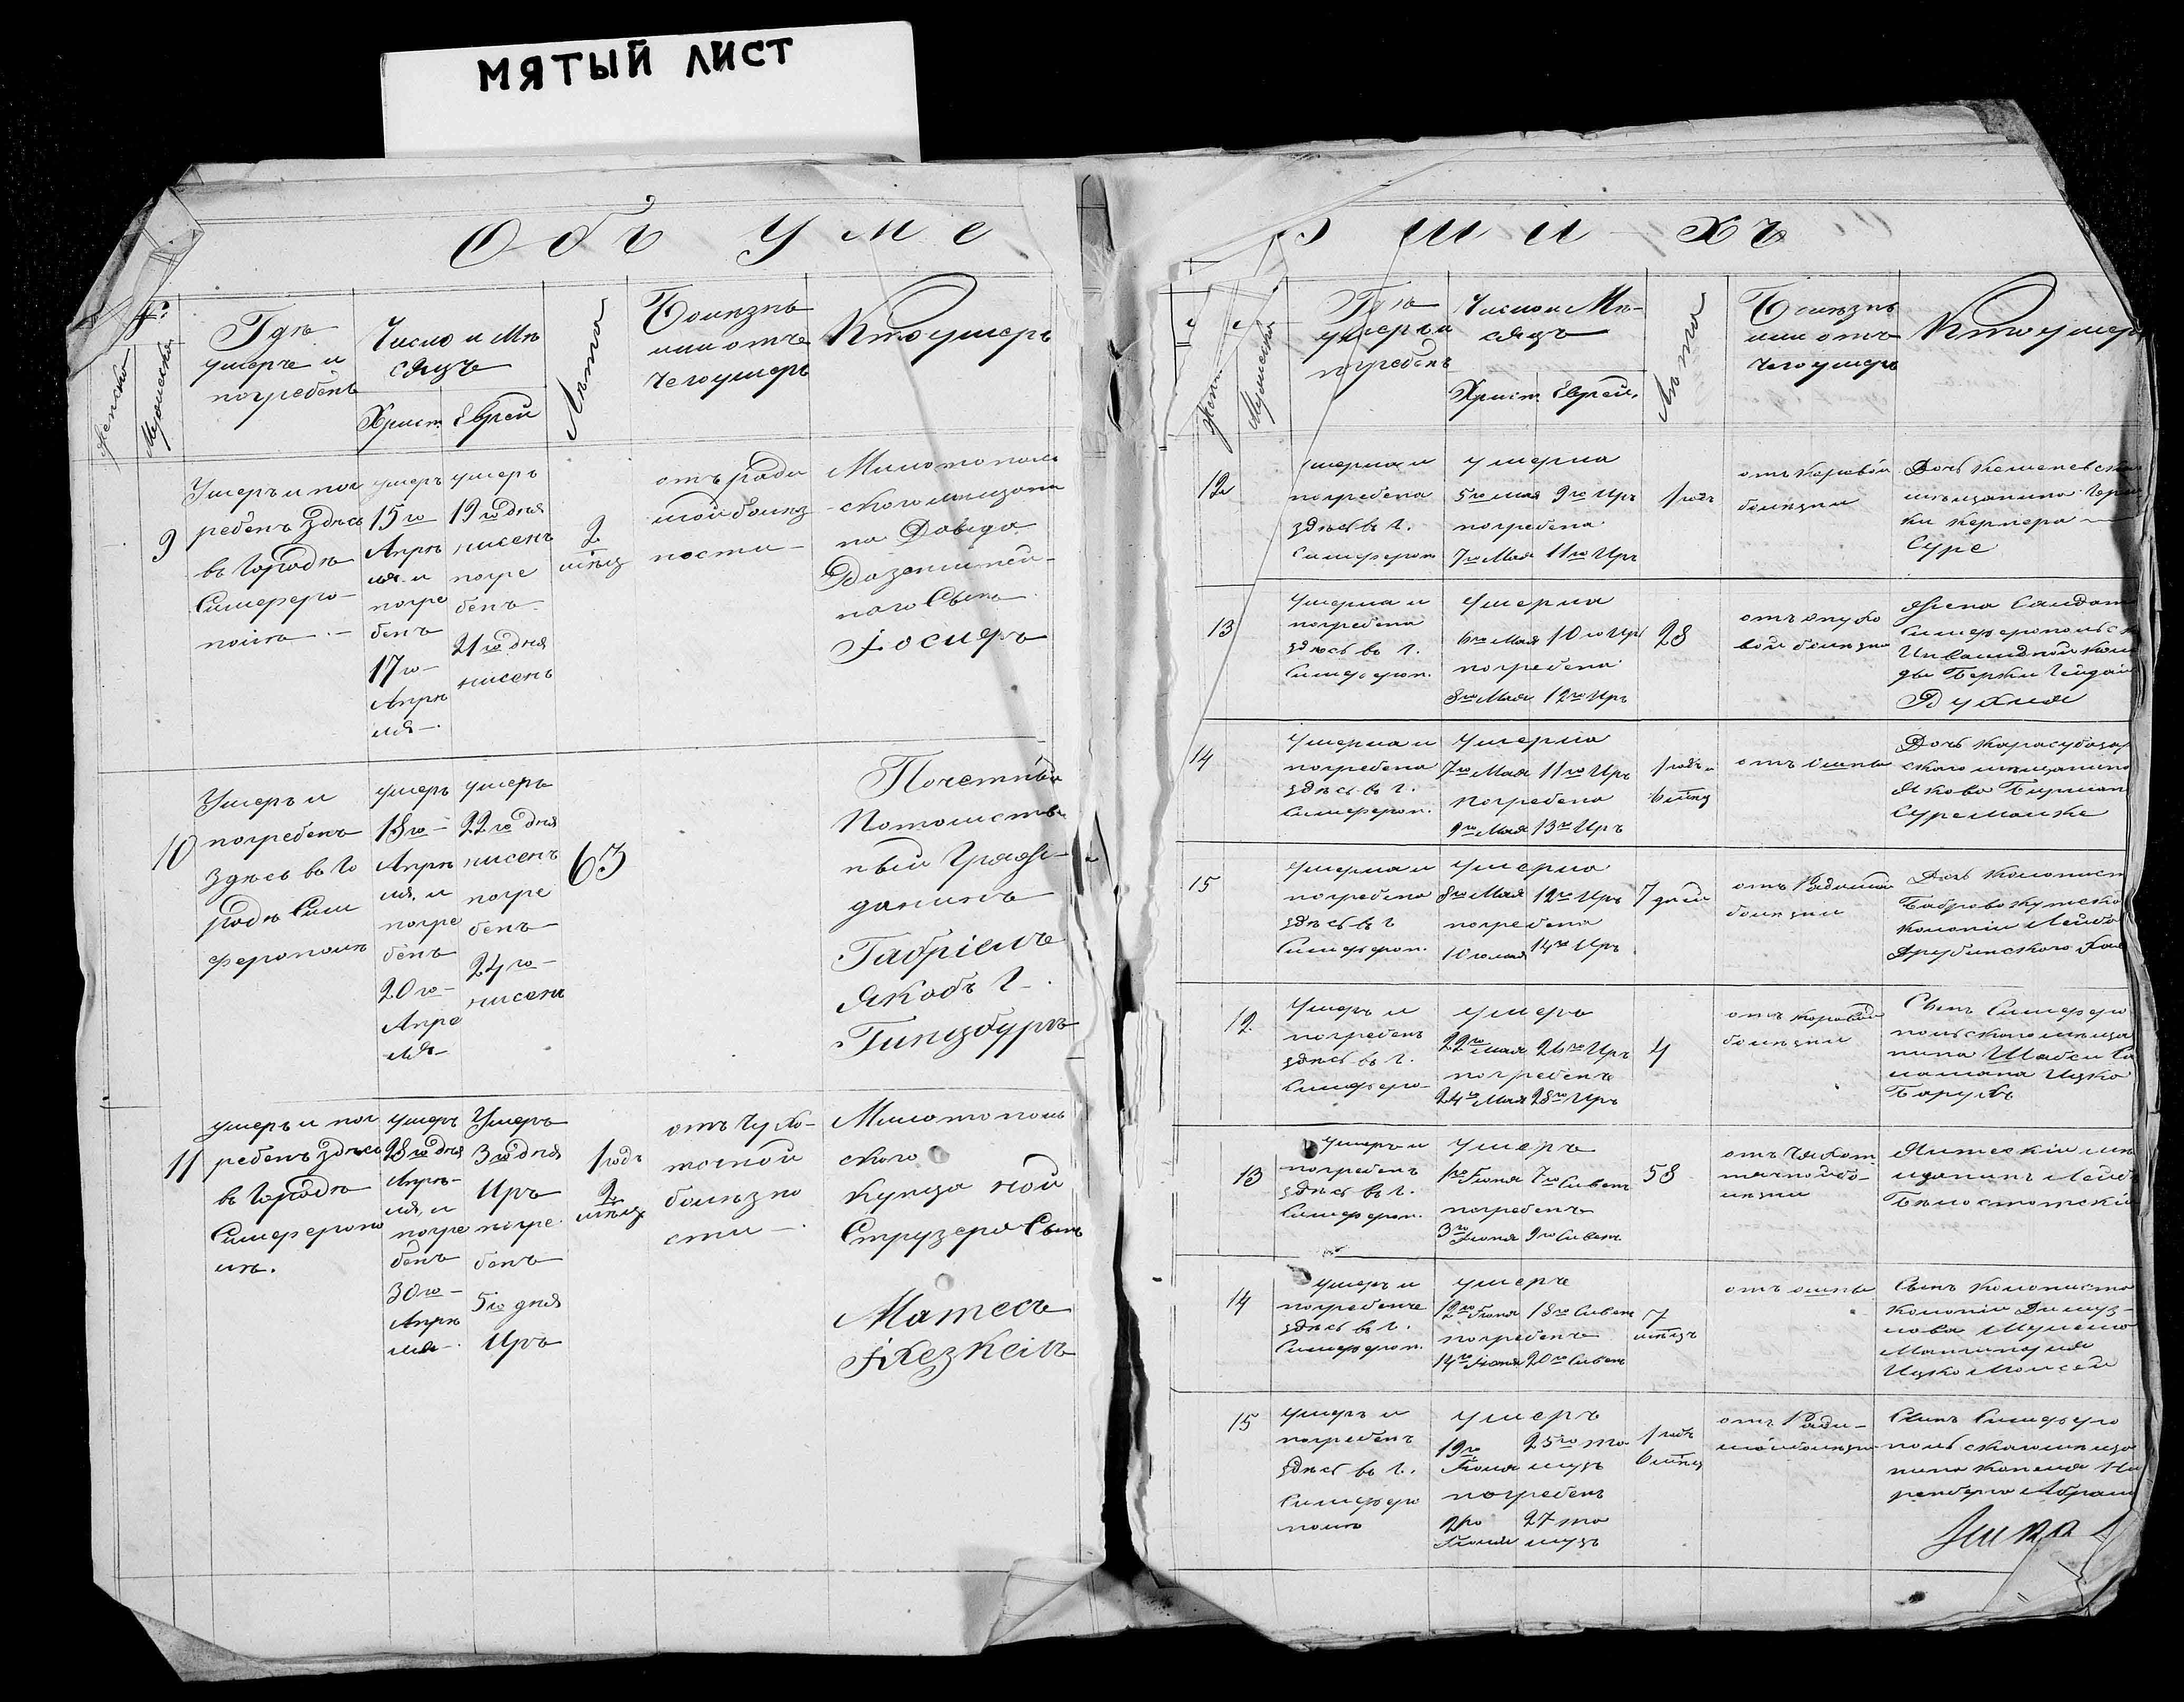 МЯТЫЙ ЛИСТ
Объ уме
Женска
Мужеска
Гдѣ
умеръ и
погребенъ
Число и Мѣ
сяцъ
Христ. Еврей
Лѣта
Болѣзнь
или отъ
чего умеръ
Кто умеръ
9
Умеръ и пог
ребенъ здѣсь
въ Городѣ
Симферо-
полѣ.-
умеръ
15го
Апрѣ
ля. и
погре
бенъ
17го-
Апрѣ
ля-.
умеръ
19го дня
нисенъ
погре
бенъ-
21го дня
нисенъ
2
мѣсц
отъ роди
мой болѣз
ности-
Милотополь
скаго мещана
на Довида
сынъ
Іосифъ
10
Умеръ и
погребенъ
здѣсь въ Го
родѣ Сим
ферополѣ
умеръ
18го-
Апрѣ
ля, и
погре
бенъ
20го-
Апре
ля-
умеръ
22го дня
нисенъ
погре
бенъ-
24го-
нисенъ
63
Почетный
Потомствен
ный Граж-
данинъ
Габріель
Якобъ Г-.
Гинцбургъ
11
умеръ и пог
ребенъ здѣсь
въ Городѣ
Симферопо
лѣ.
умеръ
28го дня
Апрѣ-
ля, и
погре
бенъ
30го-
Апрѣ
ля-.
Умеръ
3го дня
Иръ
погре
бенъ
5го дня
Иръ
1 годъ
2
мѣсц
отъ чухо-
точной
болѣзно
сти-.
Милотополь
скаго
купца
Струзера Сынъ
Матесъ
Іхезкеіль
ш и - хъ
Мужеска
Гдѣ
умеръ и
погребенъ
Число и Мѣ-
сяцъ
Христ. Еврей.
Лѣта
Болѣзнь
или отъ
чего умеръ
Кто умеръ
12
Умерла и
погребена
здѣсь въ г.
Симфероп
умерла
5го мая 9го Иръ
погребена
7го Мая 11го Иръ
1 годъ
отъ коровой
болѣзни
Дочь
мѣщанина
ки Кернера-
Суре
13
Умерла и
погребена
здѣсь въ г.
Симфероп.
Умерла
6го Мая 10го Иръ
погребена
8го Мая 12го Иръ
28
отъ опухо
вой болѣзни
Жена Солдат
Симферопольск
Инвалидной ком
ды Берки
14
Умерла и
погребена
здѣсь въ г.
Симфероп.
Умерла
7го Мая 11го Иръ
погребена
9го Мая 13го Иръ
1 годъ и
6 мѣсц
отъ оспы
Дочь Карасубазар
скаго мѣщанина
Якова Бирман
Суре Малке
15
Умерла и
погребена
здѣсь въ г
Симфероп.
Умерла
8го Мая 12го Иръ
погребена
10го мая 14го Иръ
7 дней
отъ Родимой
болѣзни
Дочь колонист
Боброво кутско
колоніи Лейбо
12.
Умеръ и
погребенъ
здѣсь въ г.
Симферо-
умеръ
22го мая 26го Иръ
погребенъ
24го Мая 28го Иръ
4
отъ коровой
болѣзни
Сынъ Симферо
польскаго мѣща
нина Шабси Са
ломона Ицко
Борухъ
13
Умеръ и
погребенъ
здѣсь въ г.
Симфероп.
умеръ
1го Іюня 7го Сивенъ
погребенъ
3го Іюня 9го Сивенъ
58
отъ Чахот
точной бо-
лѣзни
мѣ
щанинъ Лейбъ
Бѣлостотскій
14
умеръ и
погребенъ
здѣсь въ г.
Симфероп.
умеръ
12го Іюня 18го Сивен
погребенъ
14го Іюня 20го Сивенъ
7
мѣсцъ
отъ оспы
Сынъ колониста
колоніи
Ицко Моисей
15
умеръ и
погребенъ
здѣсь въ г.
Симферо
полѣ
умеръ
19го 25го та
Іюня музъ
погребенъ
21го 27 та
Іюня музъ
1 годъ
6 мѣсц
отъ Роди-
мой болѣзни
Сынъ Симферо
польскаго мѣща
нина
ренберга Абрам